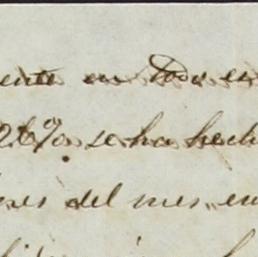 ente en todo es
26% se ha hech
nes del mes en